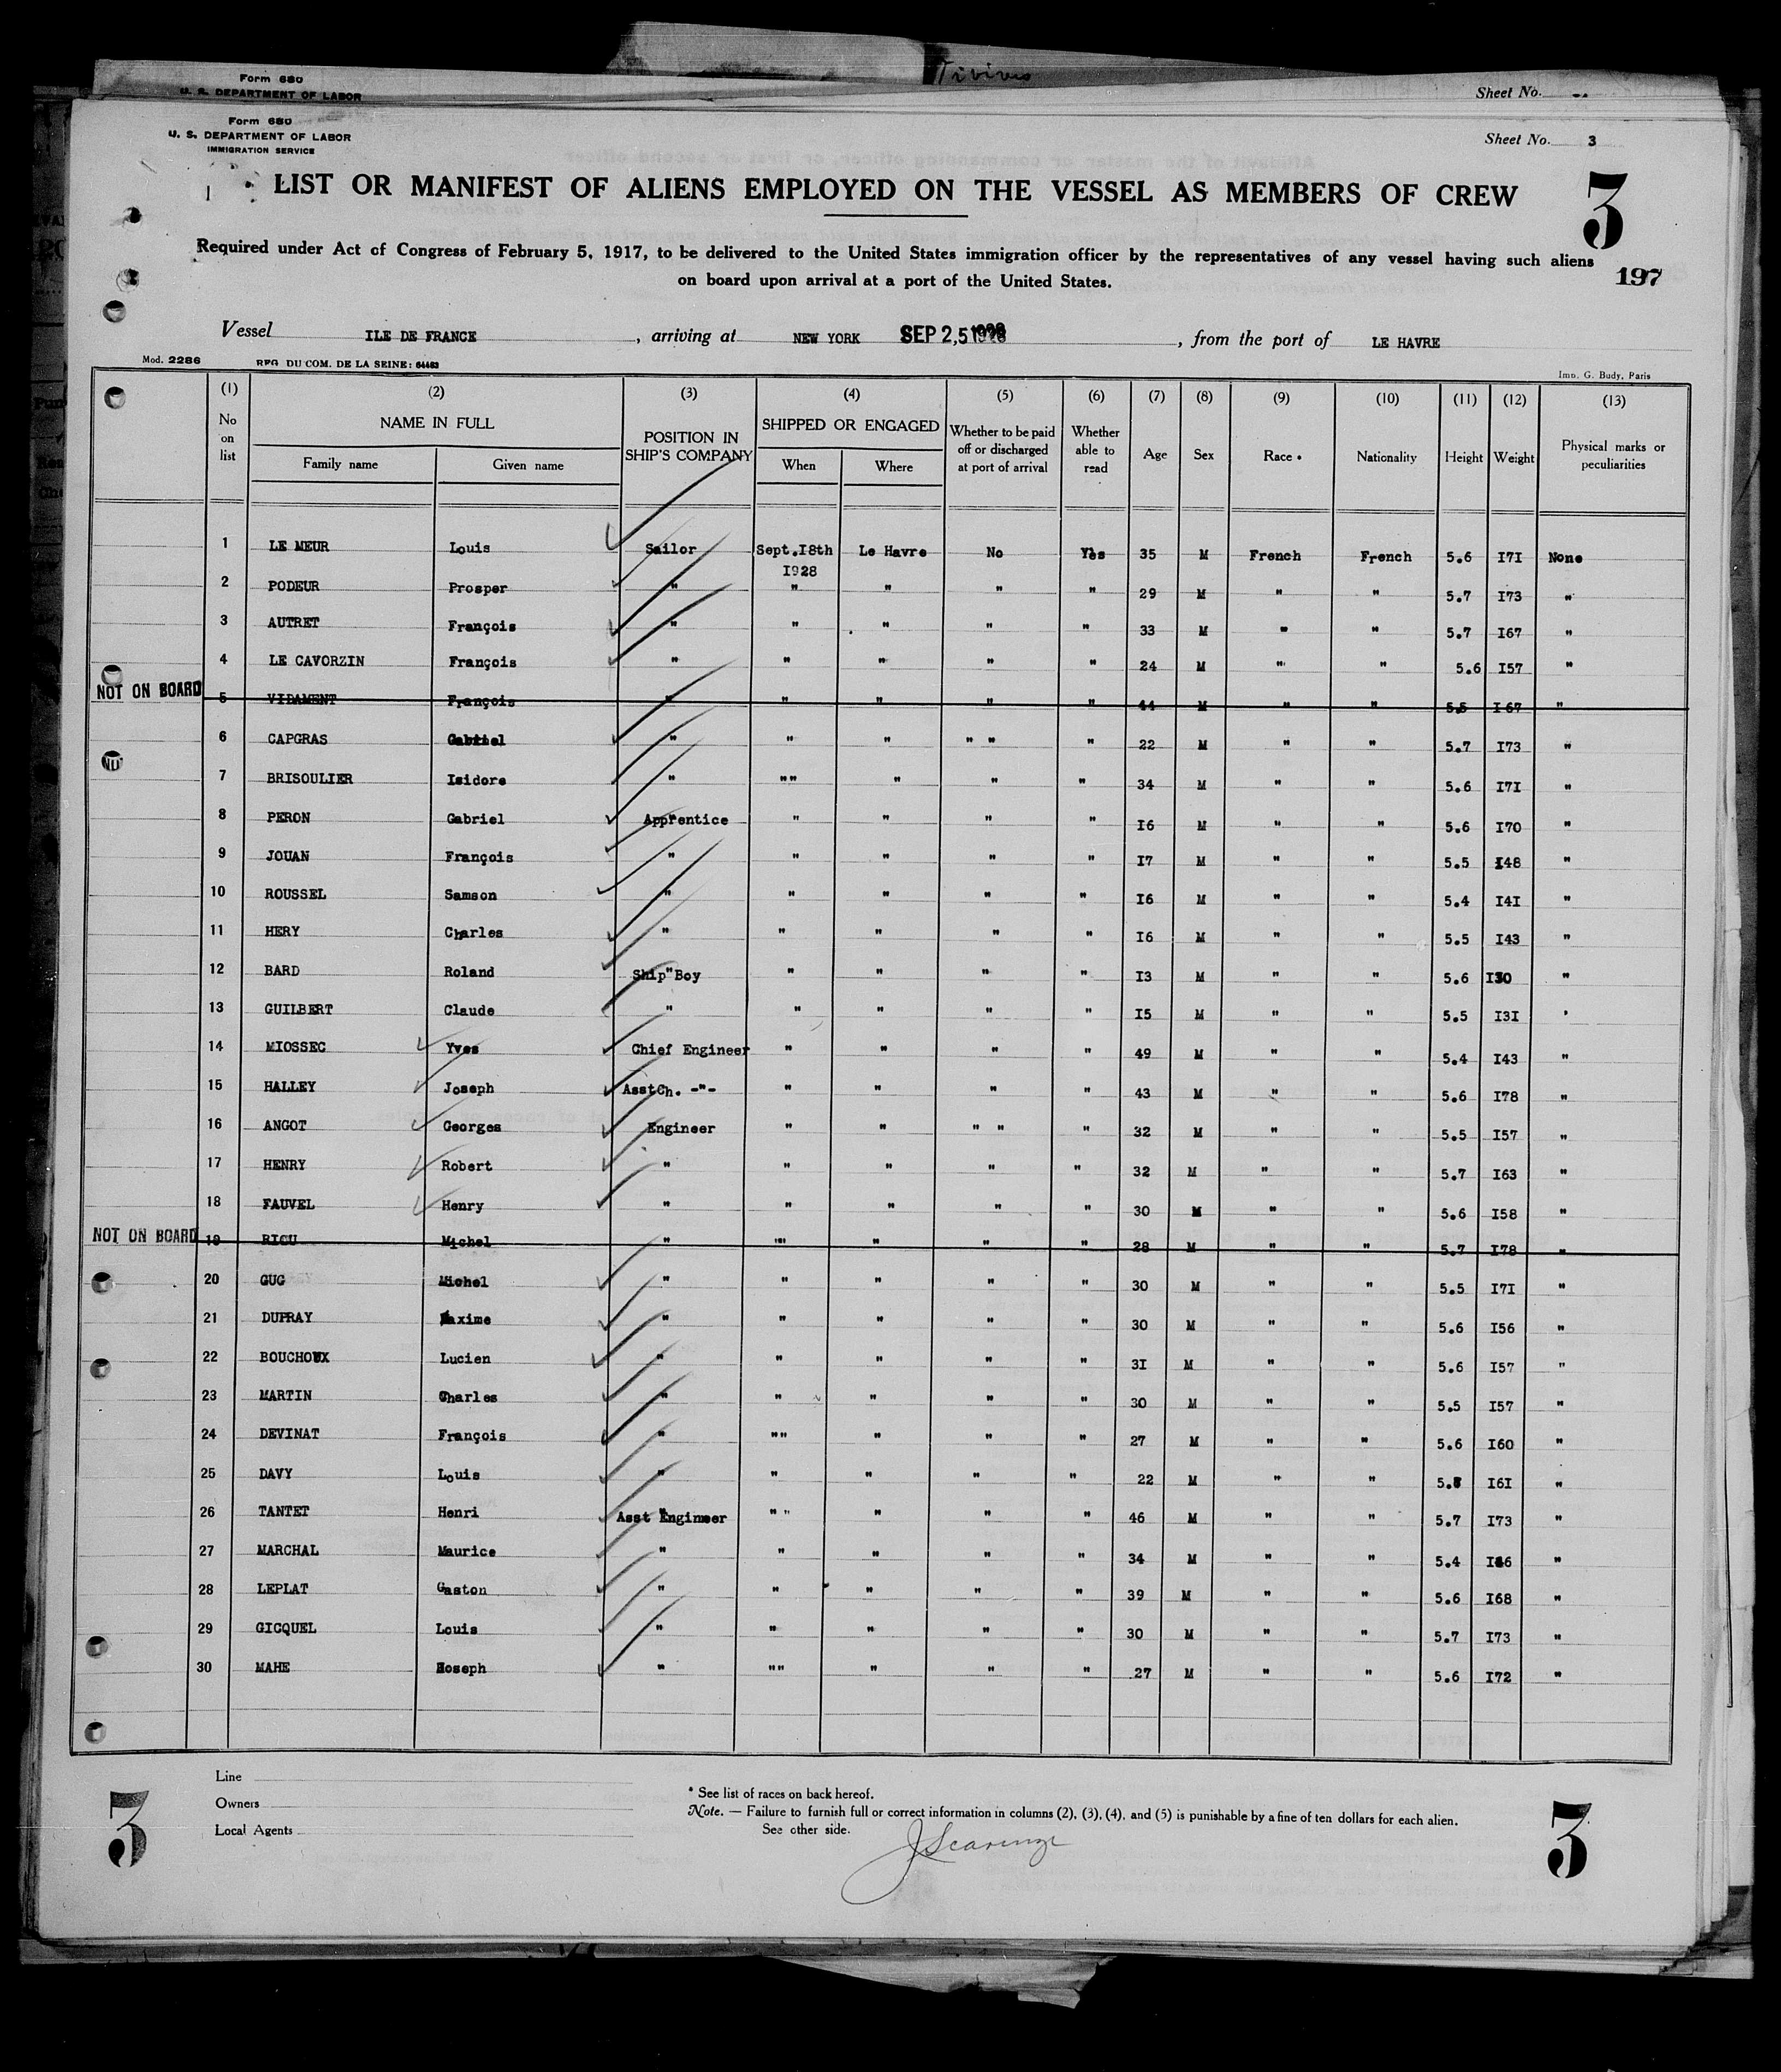 Tivives
Form 680
U. S. DEPARTMENT OF LABOR
Sheet No.
Form 680
U. S. DEPARTMENT OF LABOR
IMMIGRATION SERVICE
Sheet No. 3
LIST OR MANIFEST OF ALIENS EMPLOYED ON THE VESSEL AS MEMBERS OF CREW
3
Required under Act of Congress of February 5, 1917, to be delivered to the United States immigration officer by the representatives of any vessel having such aliens
on board upon arrival at a port of the United States.
197
Vessel ILE DE FRANCE, arriving at NEW YORK SEP 25 1928, from the port of LE HAVRE
Mod. 2286 REG. DU COM. DE LA SEINE: 64463 Imp. G. Budy, Paris
(1) (2) (3) (4) (5) (6) (7) (8) (9) (10) (11) (12) (13)
No on list NAME IN FULL POSITION IN SHIP'S COMPANY SHIPPED OR ENGAGED Whether to be paid off or discharged at port of arrival Whether able to read Age Sex Race * Nationality Height Weight Physical marks or peculiarities
Family name Given name When Where
1 LE MEUR Louis Sailor Sept.I8th I928 Le Havre No Yes 35 M French French 5.6 I7I None
2 PODEUR Prosper " " " " " 29 M " " 5.7 I73 "
3 AUTRET François " " " " " 33 M " " 5.7 I67 "
4 LE CAVORZIN François " " " " " 24 M " " 5.6 I57 "
NOT ON BOARD 5 VIDAMENT François " " " " " 44 M " " 5.5 I67 "
6 CAPGRAS Gabriel " " " " " " 22 M " " 5.7 I73 "
7 BRISOULIER Isidore " "" " " " 34 M " " 5.6 I7I "
8 PERON Gabriel Apprentice " " " " I6 M " " 5.6 I70 "
9 JOUAN François " " " " " I7 M " " 5.5 I48 "
10 ROUSSEL Samson " " " " " I6 M " " 5.4 I4I "
11 HERY Charles " " " " " I6 M " " 5.5 I43 "
12 BARD Roland Ship"Boy " " " " I3 M " " 5.6 I30 "
13 GUILBERT Claude " " " " " I5 M " " 5.5 I3I '
14 MIOSSEC Yves Chief Engineer " " " " 49 M " " 5.4 I43 "
15 HALLEY Joseph AsstCh. -"- " " " " 43 M " " 5.6 I78 "
16 ANGOT Georges Engineer " " " " " 32 M " " 5.5 I57 "
17 HENRY Robert " " " " " 32 M " " 5.7 I63 "
18 FAUVEL Henry " " " " " 30 M " " 5.6 I58 "
NOT ON BOARD 19 RIOU Michel " "" " " " 28 M " " 5.7 I78 "
20 GUG Michel " " " " " 30 M " " 5.5 I7I "
21 DUPRAY Maxime " " " " " 30 M " " 5.6 I56 "
22 BOUCHOUX Lucien " " " " " 3I M " " 5.6 I57 "
23 MARTIN Charles " " " " " 30 M " " 5.5 I57 "
24 DEVINAT François " "" " " " 27 M " " 5.6 I60 "
25 DAVY Louis " " " " " 22 M " " I6I "
26 TANTET Henri Asst Engineer " " " " " 46 M " " 5.7 I73 "
27 MARCHAL Maurice " " " " " 34 M " " 5.4 "
28 LEPLAT Gaston " " " " " 39 M " " 5.6 I68 "
29 GICQUEL Louis " " " " " 30 M " " 5.7 I73 "
30 MAHE Hoseph " "" " " " 27 M " " 5.6 I72 "
Line
Owners
Local Agents
* See list of races on back hereof.
Note. — Failure to furnish full or correct information in columns (2), (3), (4), and (5) is punishable by a fine of ten dollars for each alien.
See other side.
3
3